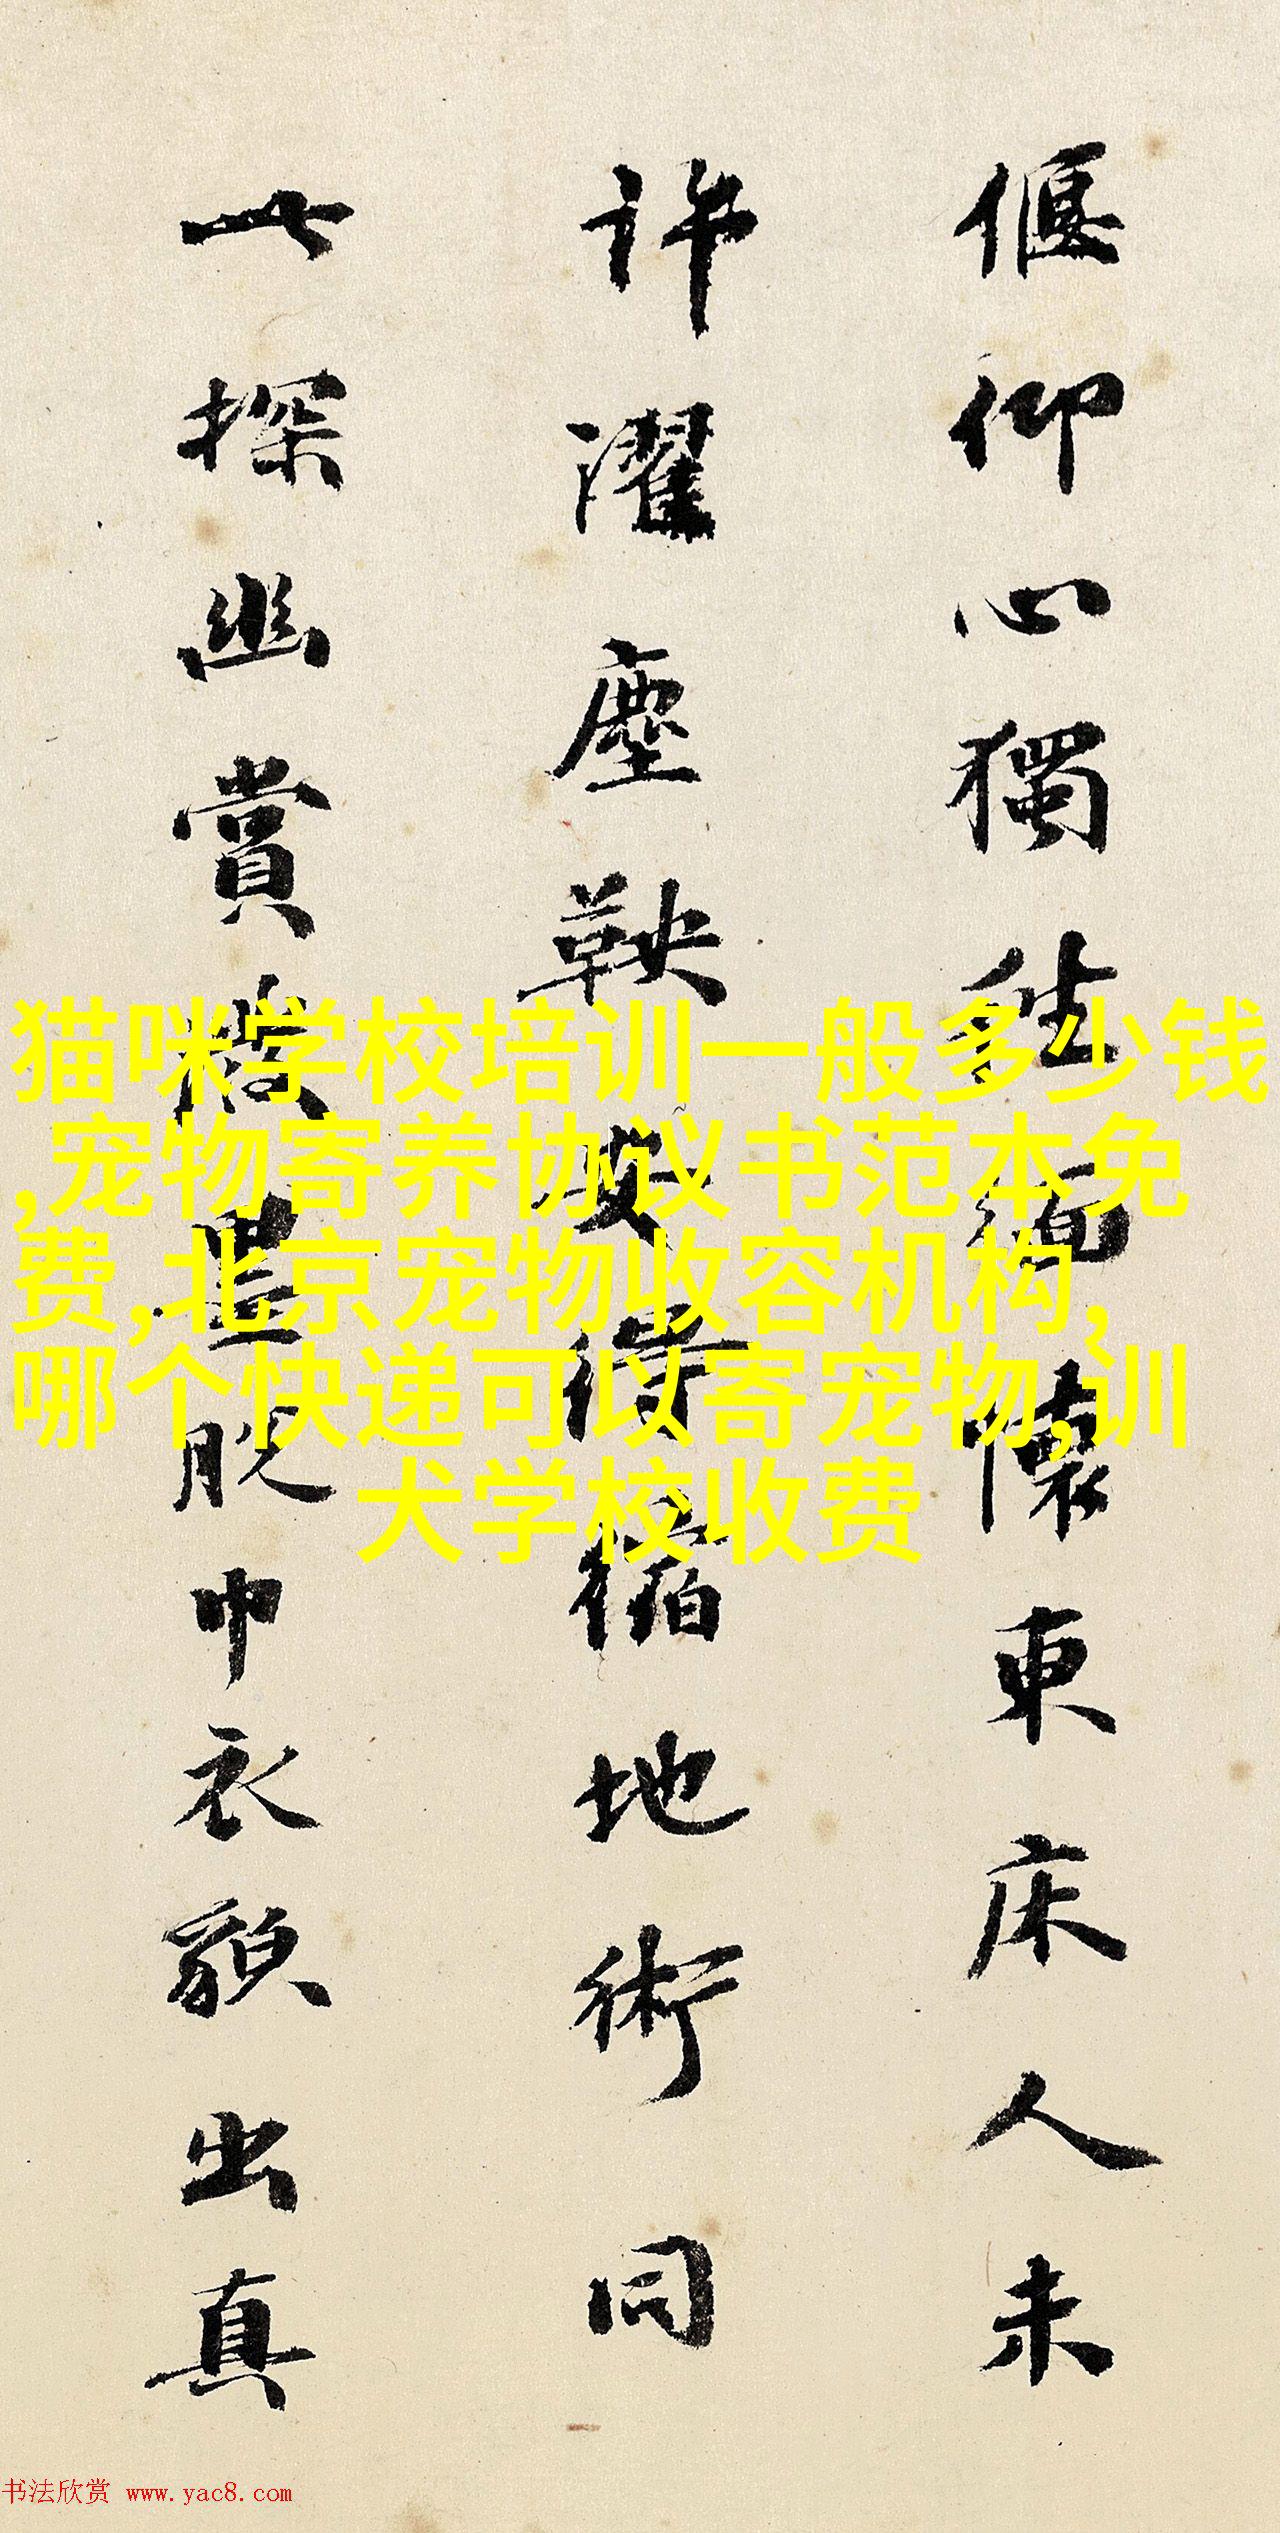 偃仰心獨往緬懷東床人未
許濯塵鞅安得縮地術同
此探幽賞脫巾衣貌出真
猫咪学校培训一般多少钱
,宠物寄养协议书范本免
费,北京宠物收容机构,
哪个快递可以寄宠物,训
犬学校收费
书法欣赏 www.yac8.com